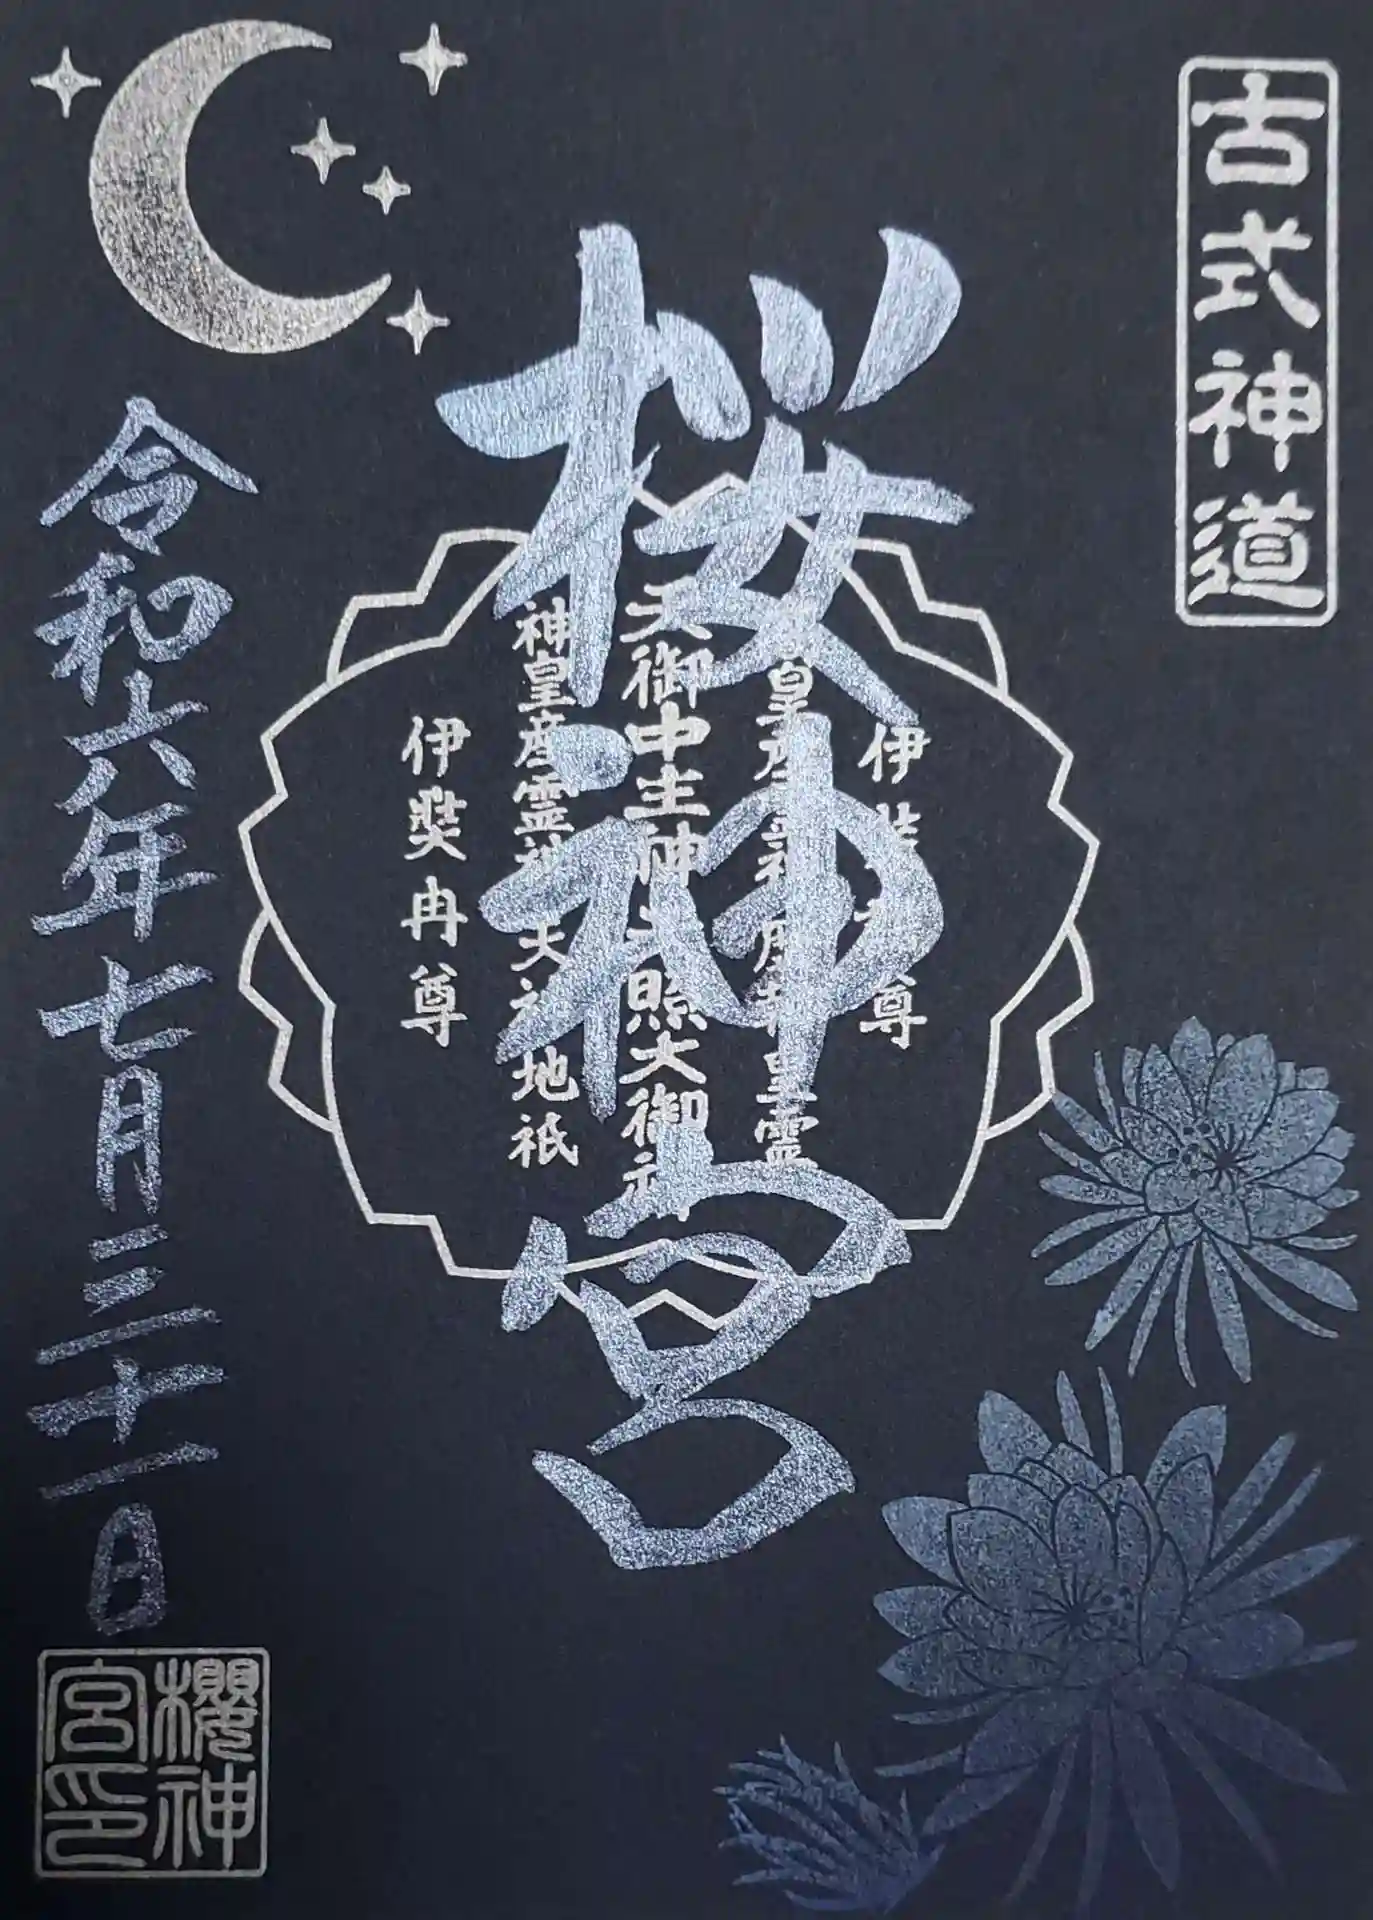 古式神道
桜神宮
伊弉
尊
皇産霊神
皇霊
天御中主神
天照大御神
神皇産霊神
天神地祇
伊弉冉尊
令和六年七月三十一日
櫻神
宮印